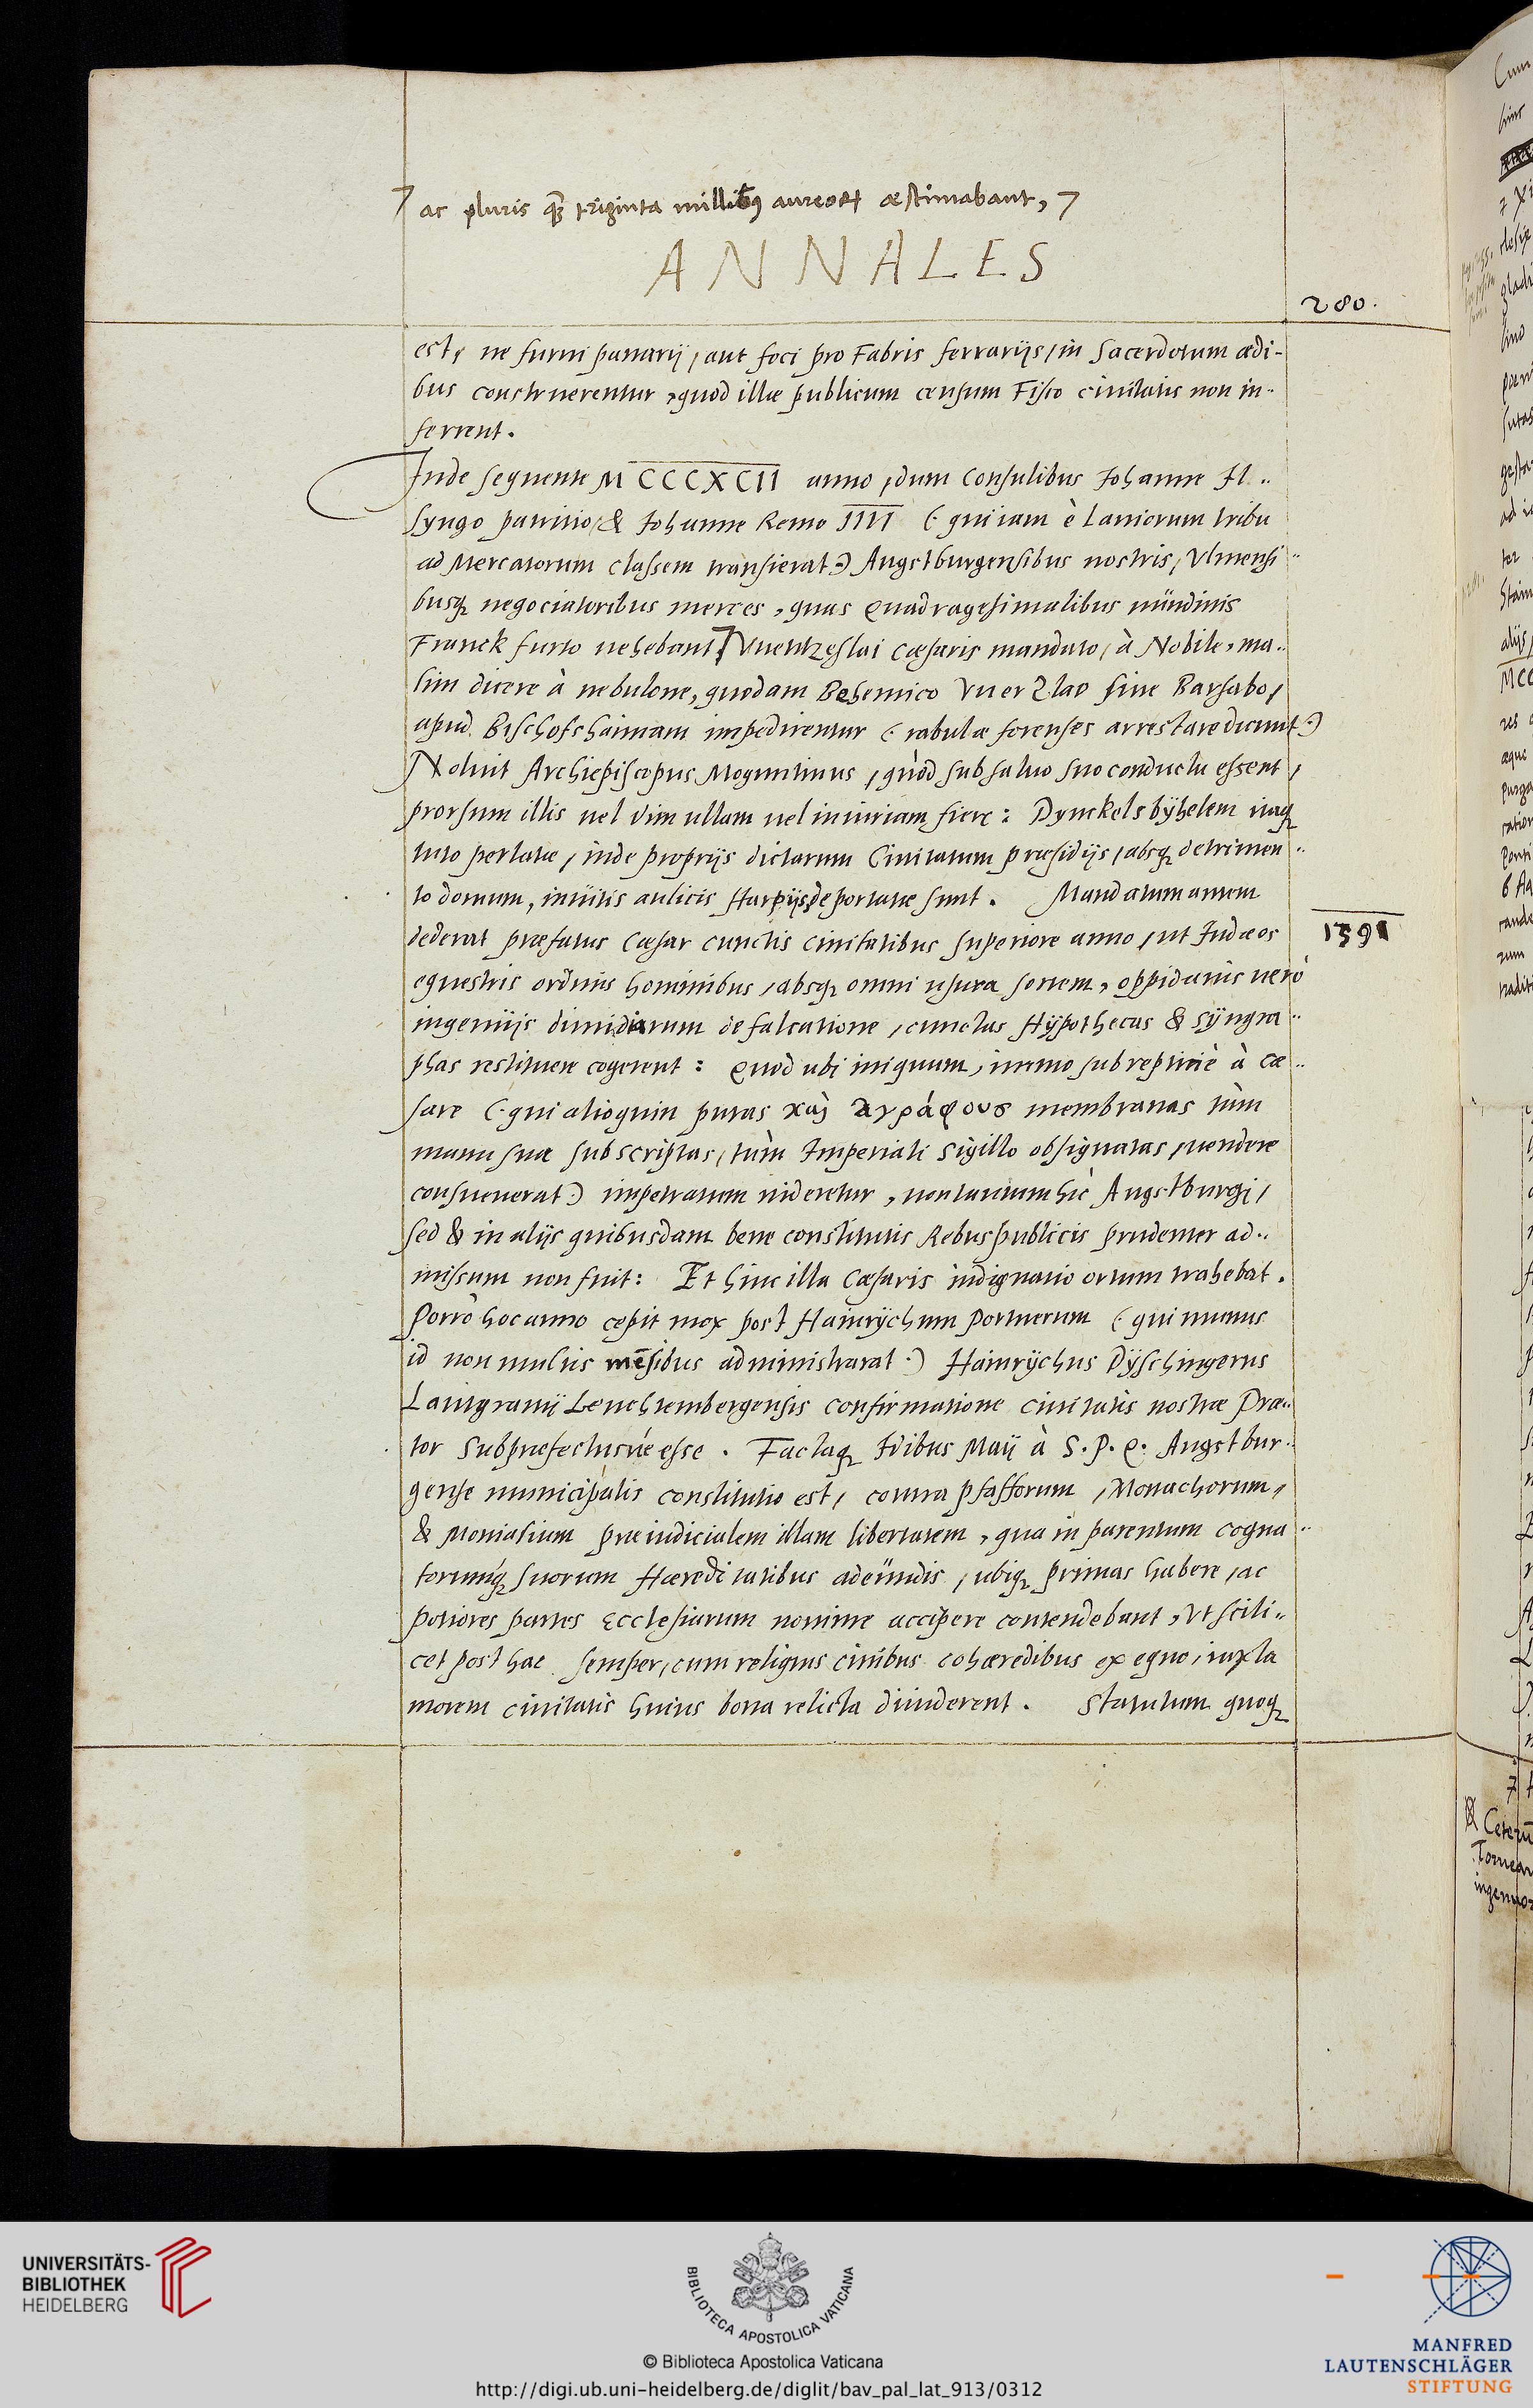 ⁊ ac pluris ꝙ̃ triginta millibꝰ aureoꝝ æstimabant, ⁊
ANNALES
280.
est, ne furni panarij, aut foci pro Fabris ferrarijs, in Sacerdotum ædi-
bus construerentur, quod illæ publicum censum Fisco ciuitatis non in-
ferrent.
Inde sequente MCCCXCII anno, dum Consulibus Iohanne Il-
syngo patritio, & Iohanne Remo IIII (qui iam è Laniorum tribu
ad Mercatorum classem transierat) Augstburgensibus nostris, Vlmensi-
busq; negociatoribus merces, quas Quadragesimalibus nundinis
Franckfurto uehebant, ⁊ VVentzeslai Cæsaris mandato, à Nobile, ma-
lim dicere à nebulone, quodam Bohemico Vuerzlao siue Barsabo,
apud Bischofshaimam impedirentur (rabulæ forenses arrestare dicunt)
Noluit Archiepiscopus Moguntinus, quòd sub saluo suo conductu essent,
prorsum illis uel vim ullam uel iniuriam fiere: Dynckelsbÿhelem itaq;
tuto perlatæ, inde proprijs dictarum Ciuitatum præsidijs, absq; detrimen-
to domum, inuitis aulicis Harpijs, deportatæ sunt. Mandatum autem
dederat præfatus Cæsar cunctis ciuitatibus superiore anno, ut Iudæos
1391
equestris ordinis hominibus, absq; omni usura sortem, oppidanis uerò
ingenuijs dimidiarum defalcatione, cunctas Hÿpothecas & Sÿngra-
phas restituere cogerent: Quod ubi iniquum, immo subreptitiè à Cæ-
sare (qui alioquin puras καὶ ἀγράφους membranas tùm
manu sua subscriptas, tùm Imperiali Sigillo obsignatas, uendere
consueuerat) impetratum uideretur, non tantum hìc Augstburgi,
sed & in alijs quibusdam bene constitutis Rebuspublicis prudenter ad-
missum non fuit: Et hinc illa Cæsaris indignatio ortum trahebat.
Porrò hoc anno cepit mox post Hainrÿchum Portnerum (qui munus
id non multis mēsibus administrarat) Hainrÿchus Dÿschingerus
Lantgrauij Leuchtembergensis confirmatione ciuitatis nostræ Præ-
tor Subpræfectusúe esse. Factaq; Idibus Maij à S. P. Q. Augstbur-
gense municipalis constitutio est, contra Pfafforum, Monachorum,
& Monialium præiudicialem illam libertatem, qua in parentum cogna-
torumq́; suorum Hæreditatibus adeundis, ubiq; primas habere, ac
potiores partes Ecclesiarum nomine accipere contendebant, Vt scili-
cet post hac semper, cum reliquis ciuibus cohæredibus ex equo, iuxta
morem ciuitatis huius bona relicta diuiderent. Statutum quoq;
UNIVERSITÄTS-
BIBLIOTHEK
HEIDELBERG
BIBLIOTECA APOSTOLICA VATICANA
© Biblioteca Apostolica Vaticana
http://digi.ub.uni-heidelberg.de/diglit/bav_pal_lat_913/0312
MANFRED
LAUTENSCHLÄGER
STIFTUNG